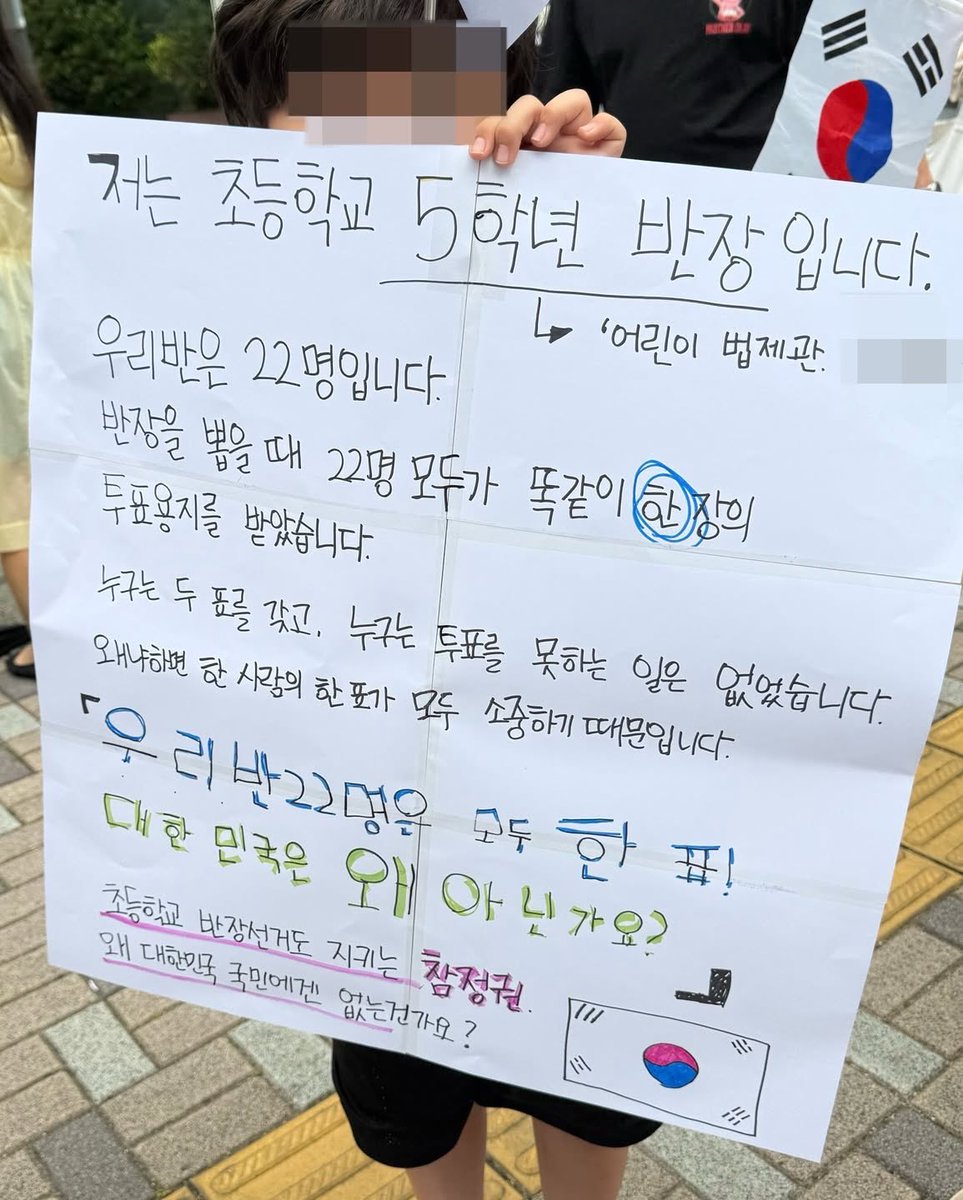 저는 초등학교 5학년 반장입니다.
'어린이 법제관.
우리반은 22명입니다.
반장을 뽑을 때 22명 모두가 똑같이 한 장의
투표용지를 받았습니다.
누구는 두 표를 갖고, 누구는 투표를 못하는 일은 없었습니다.
왜냐하면 한 사람의 한 표가 모두 소중하기 때문입니다.
「우리반 22명은 모두 한 표!
대한민국은 왜 아닌가요?
초등학교 반장선거도 지키는 참정권.
왜 대한민국 국민에겐 없는건가요?」